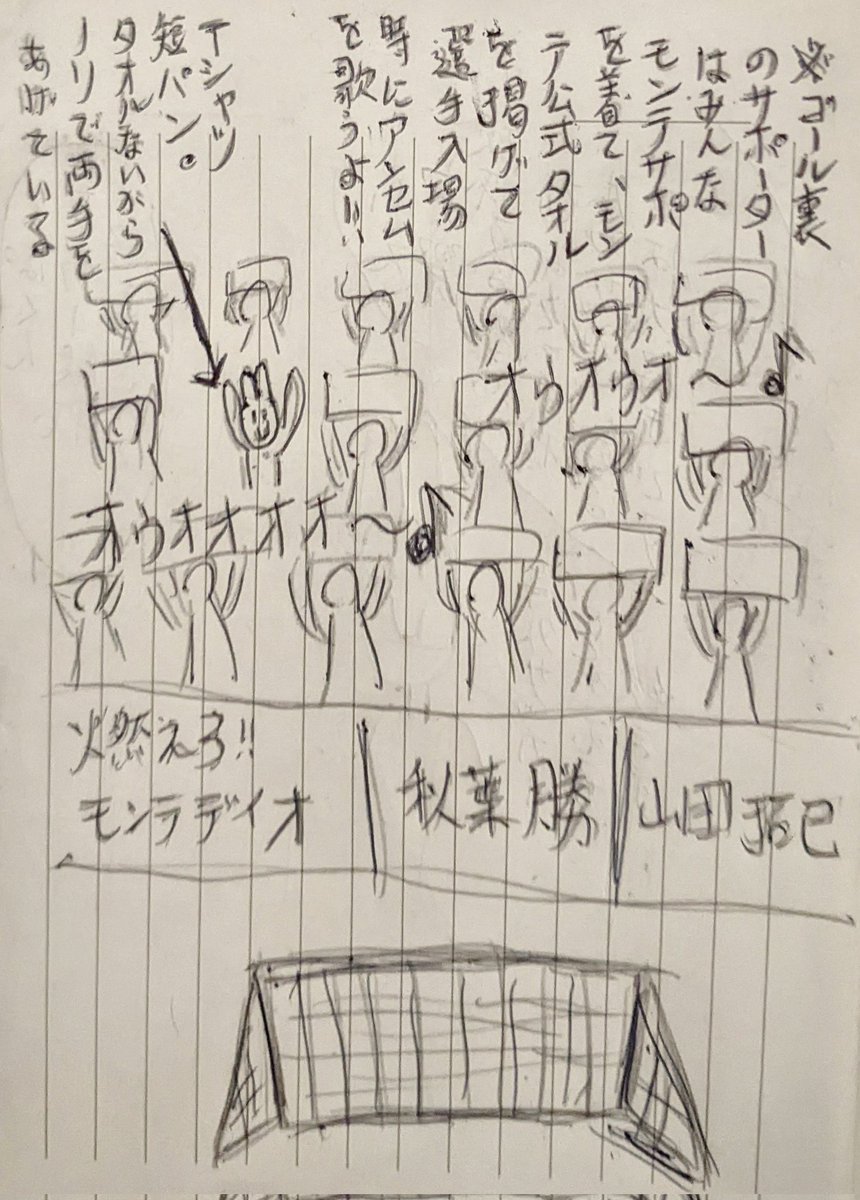 ※ゴール裏
のサポーター
はみんな
モンテサポ
を着て、モン
テ公式タオル
を掲げて
選手入場
時にアンセム
を歌うよ!!
Tシャツ
短パン。
タオルないから
ノリで両手を
あげている
オウオウオ〜♪
オウオオオオ〜♪
燃えろ!!
モンテディオ
秋葉勝
山田拓巳